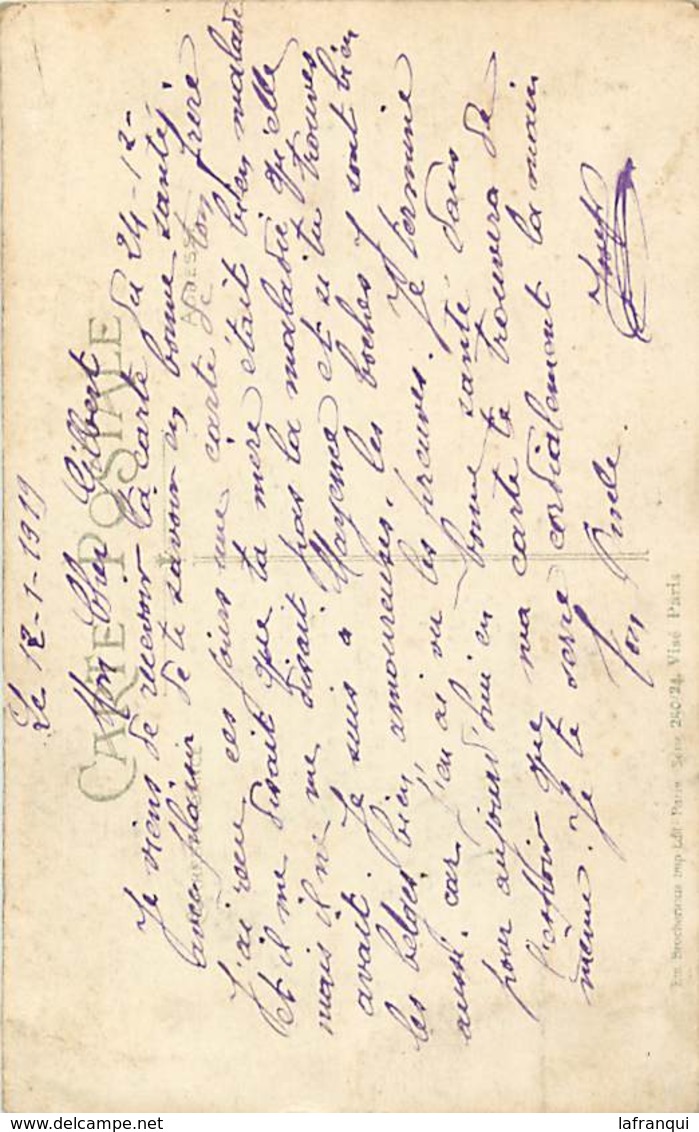 Le 12-1-1919
Mon Cher Gilbert
CARTE POSTALE
Je viens de recevoir ta carte du 24-12-
avec plaisir de te savoir en bonne santé
J'ai reçu ces jours une carte de ton frère
Et il me disait que ta mère était bien malade
mais il ne me disait pas la maladie qu'elle
avait. Je suis a Mayence et si tu trouves
les belges bien amoureuses. les boches y sont bien
aussi. car j'en ai vu les preuves. Je termine
pour aujourd'hui en bonne santé dans
l'espoir que ma carte te trouvera de
même. Je te serre cordialement la main
Ton Joseph
Em. Imp Edit Paris Série 240/24, Visé Paris
lafranqui
delcampe.net